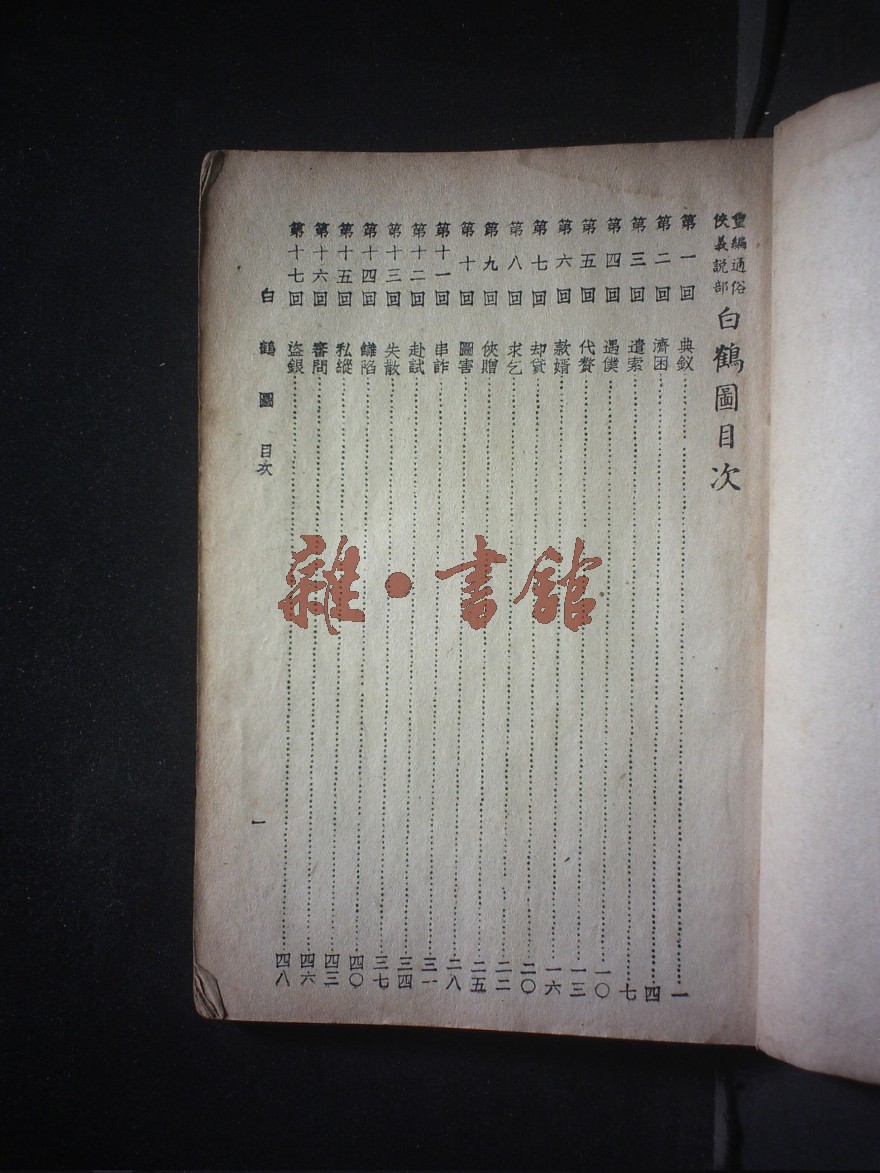 重編通俗
俠義說部
白鶴圖目次
第一回 典釵 一
第二回 濟困 四
第三回 遣索 七
第四回 遇僕 一〇
第五回 代贅 一三
第六回 款婿 一六
第七回 却貸 二〇
第八回 求乞 二二
第九回 俠贈 二五
第十回 圖害 二八
第十一回 串詐 三一
第十二回 赴試 三四
第十三回 失散 三七
第十四回 讎陷 四〇
第十五回 私縱 四三
第十六回 審問 四六
第十七回 盜銀 四八
白鶴圖 目次 一
雜·書館